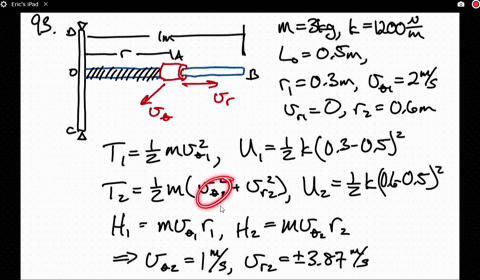 Eric's iPad
93.
D
1m
r
A
O
B
C
v_θ
v_r
m=3kg, k=1200 N/m
L₀=0.5m,
r₁=0.3m, v_θ₁=2 m/s
v_r₁=0, r₂=0.6m
T₁=½mv_θ₁², U₁=½k(0.3-0.5)²
T₂=½m(v_θ₂²+v_r₂²), U₂=½k(0.6-0.5)²
H₁=mv_θ₁r₁, H₂=mv_θ₂r₂
⇒ v_θ₂=1 m/s, v_r₂=±3.87 m/s